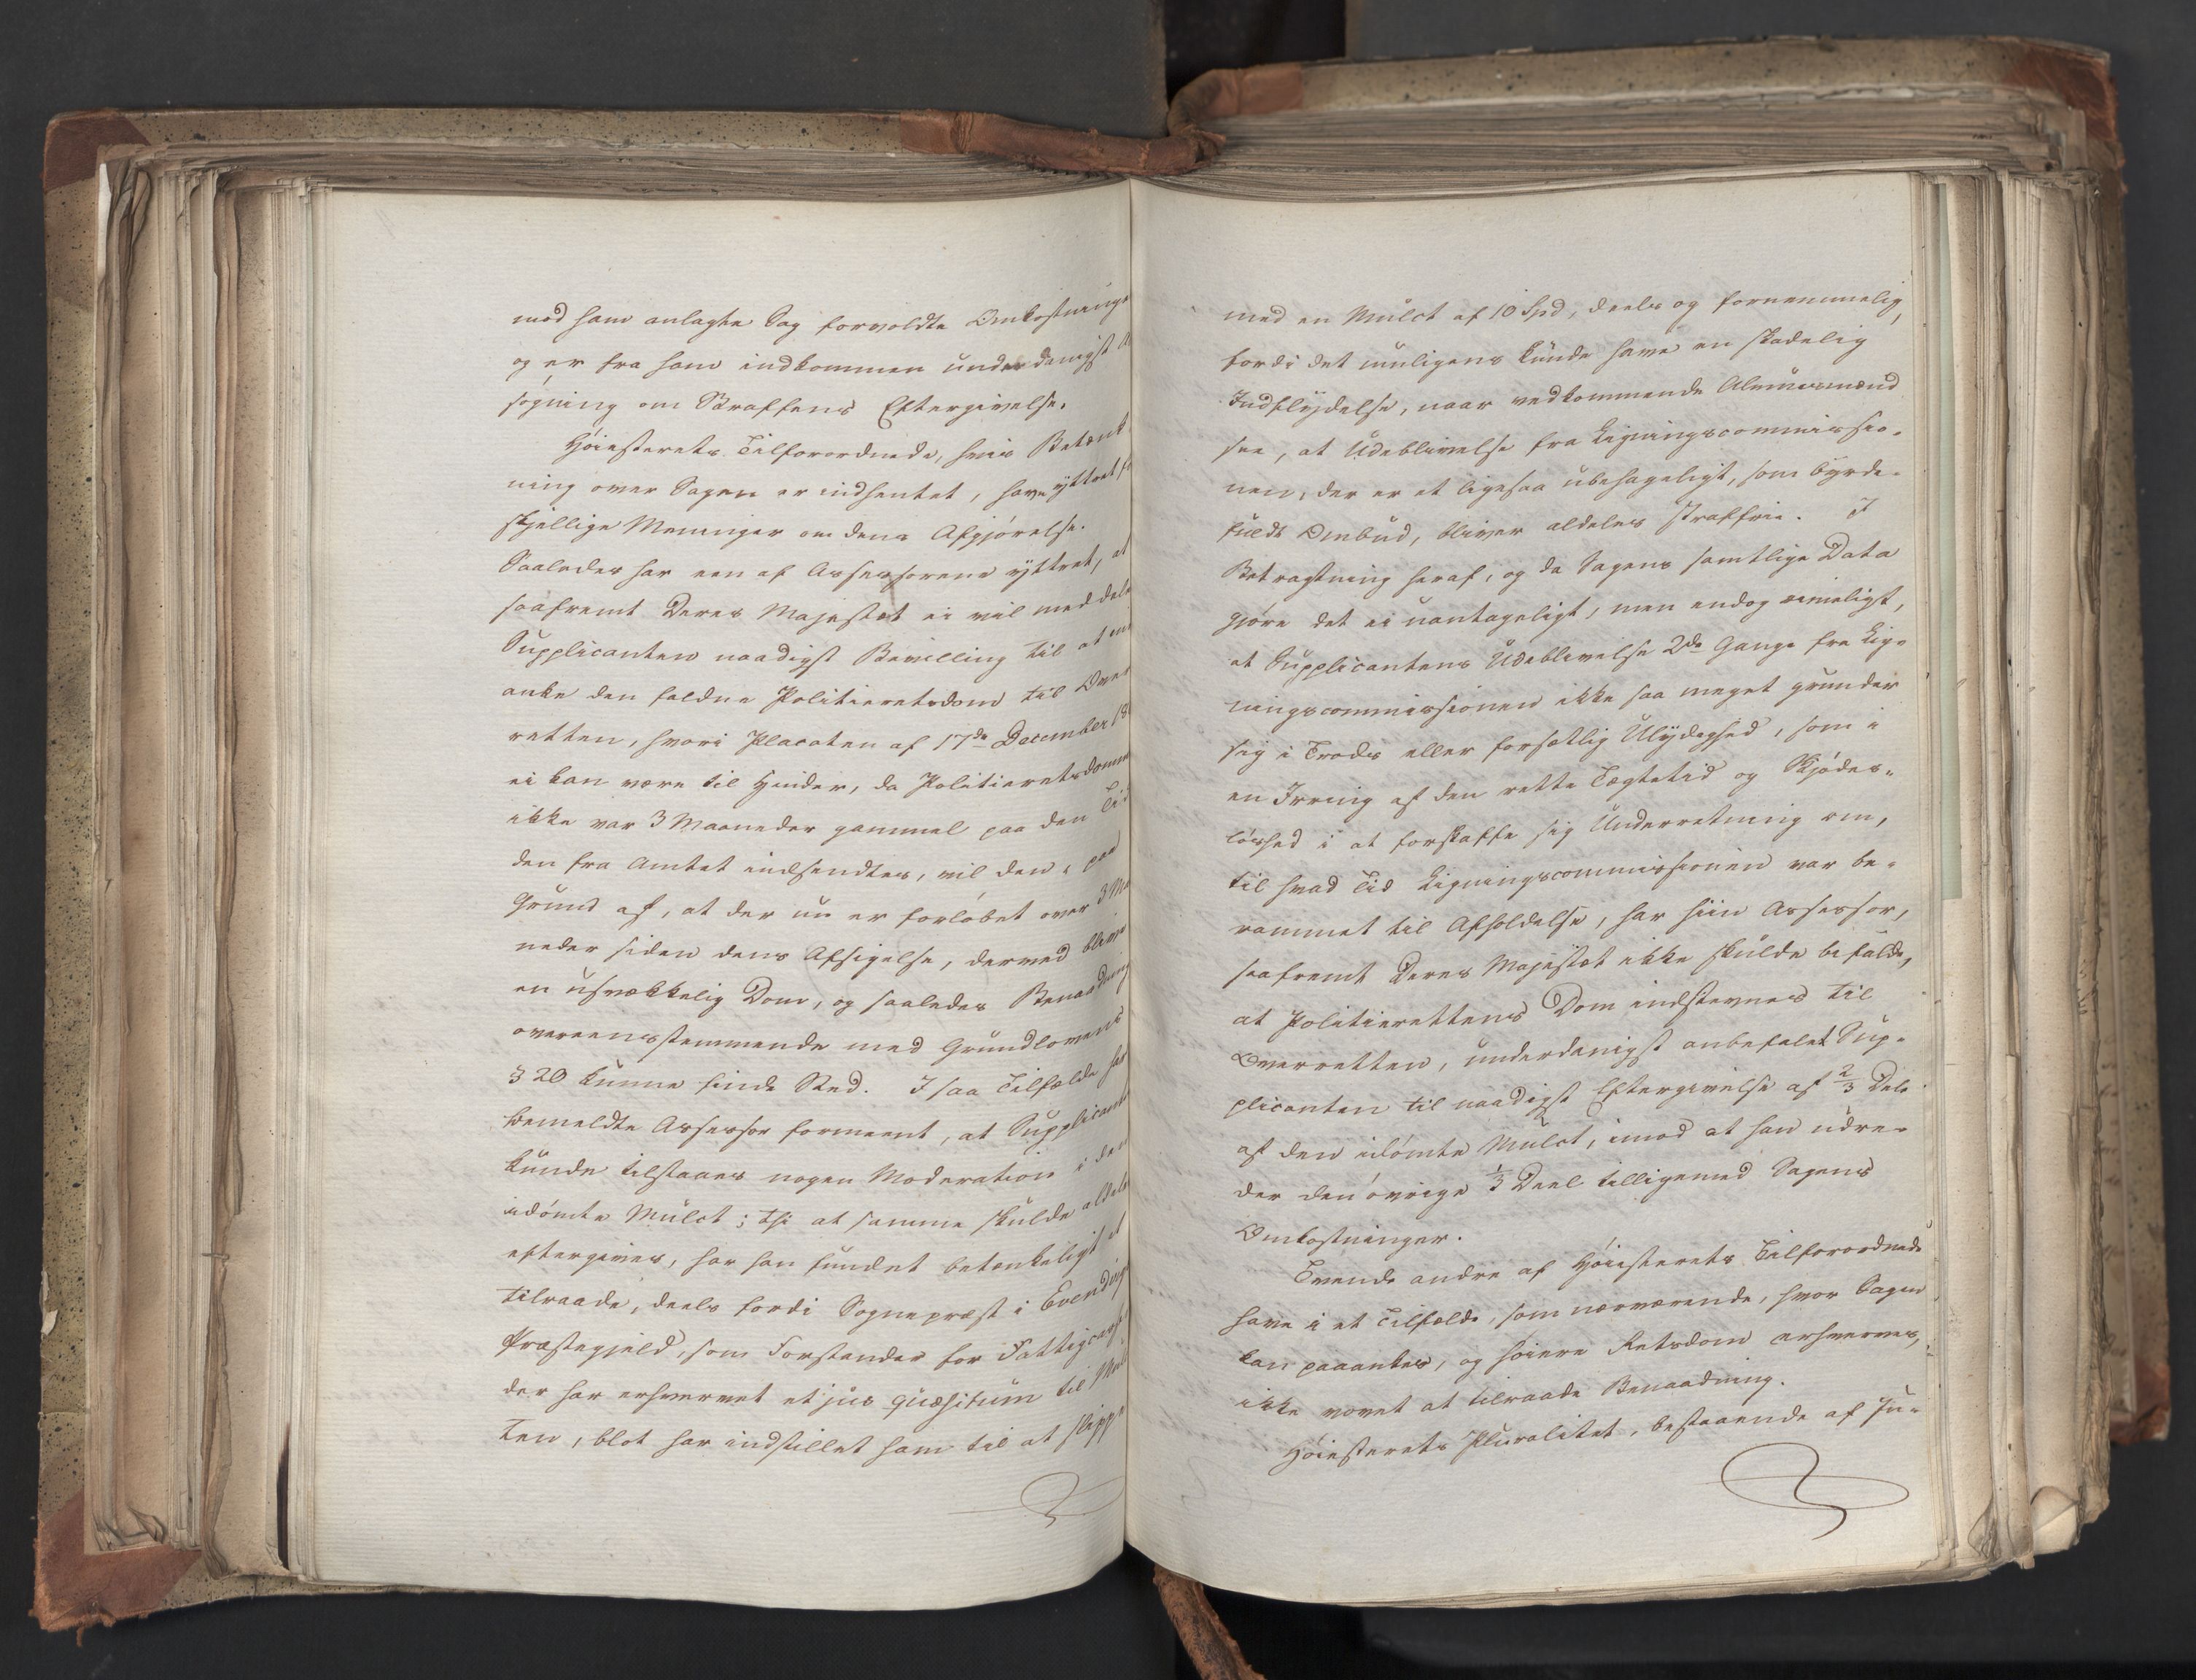 mod ham anlagte Sag forvoldte Omkostninge
og er fra ham indkommen underdanigst A
søgning om Straffens Eftergivelse.
Høiesterets Tilforordnede, hvis Betænk
ning over Sagen er indhentet, have yttret for
skjellige Meninger om dens Afgjørelse.
Saaledes har een af Assessorerne yttret, at
saafremt Deres Majestæt ei vil meddele
Supplicanten naadigst Bevilling til at ind
anke den faldne Politieretsdom til Over
retten, hvori Placaten af 17de December 18
ei kan være til Hinder, da Politieretsdomme
ikke var 3 Maaneder gammel paa den Tid
den fra Amtet indsendtes, vil den, paa
Grund af, at der nu er forløbet over 3 Ma
neder siden dens Afsigelse, dermed blive
en usvækkelig Dom, og saaledes Benaadning
overeensstemmende med Grundlovens
§ 20 kunne finde Sted. I saa Tilfælde har
bemeldte Assessor formeent, at Supplicante
kunde tilstaaes nogen Moderation i den
idømte Mulct; thi at samme skulde aldeles
eftergives, har han fundet betænkeligt at
tilraade, deels fordi Sognepræst i Evendige
Præstegjeld, som Forstander for Fattigcasse
der har erhvervet et jus quæsitum til Mul
ten, blot har indstillet ham til at slippe
med en Mulct af 10 Spd, deels og fornemmelig,
fordi det muligens kunde have en skadelig
Indflydelse, naar vedkommende Almuesmænd
see, at Udeblivelse fra Ligningscommissio-
nen, der er et ligesaa ubehageligt, som byrde-
fuldt Ombud, bliver aldeles straffrie. I
Betragtning heraf, og da Sagens samtlige Data
gjøre det ei uantageligt, men endog rimeligt,
at Supplicantens Udeblivelse 2de Gange fra Lig-
ningscommissionen ikke saa meget grunder
sig i Trods eller forsætlig Ulydighed, som i
en Irring af den rette Tægtetid og Skjødes-
løshed i at forskaffe sig Underretning om,
til hvad Tid Ligningscommissionen var be-
rammet til Afholdelse, har hiin Assessor,
saafremt Deres Majestæt ikke skulde befale,
at Politierettens Dom indstevnes til
Overretten, underdanigst anbefalet Sup-
plicanten til naadigst Eftergivelse af 2/3 Dele
af den idømte Mulct, imod at han udre-
der den øvrige 1/3 Deel tilligemed Sagens
Omkostninger.
Tvende andre af Høiesterets Tilforordnede
have i et Tilfælde, som nærværende, hvor Sagen
kan paaankes, og høiere Retsdom erhverves,
ikke vovet at tilraade Benaadning.
Høiesterets Pluralitet, bestaaende af Ju-